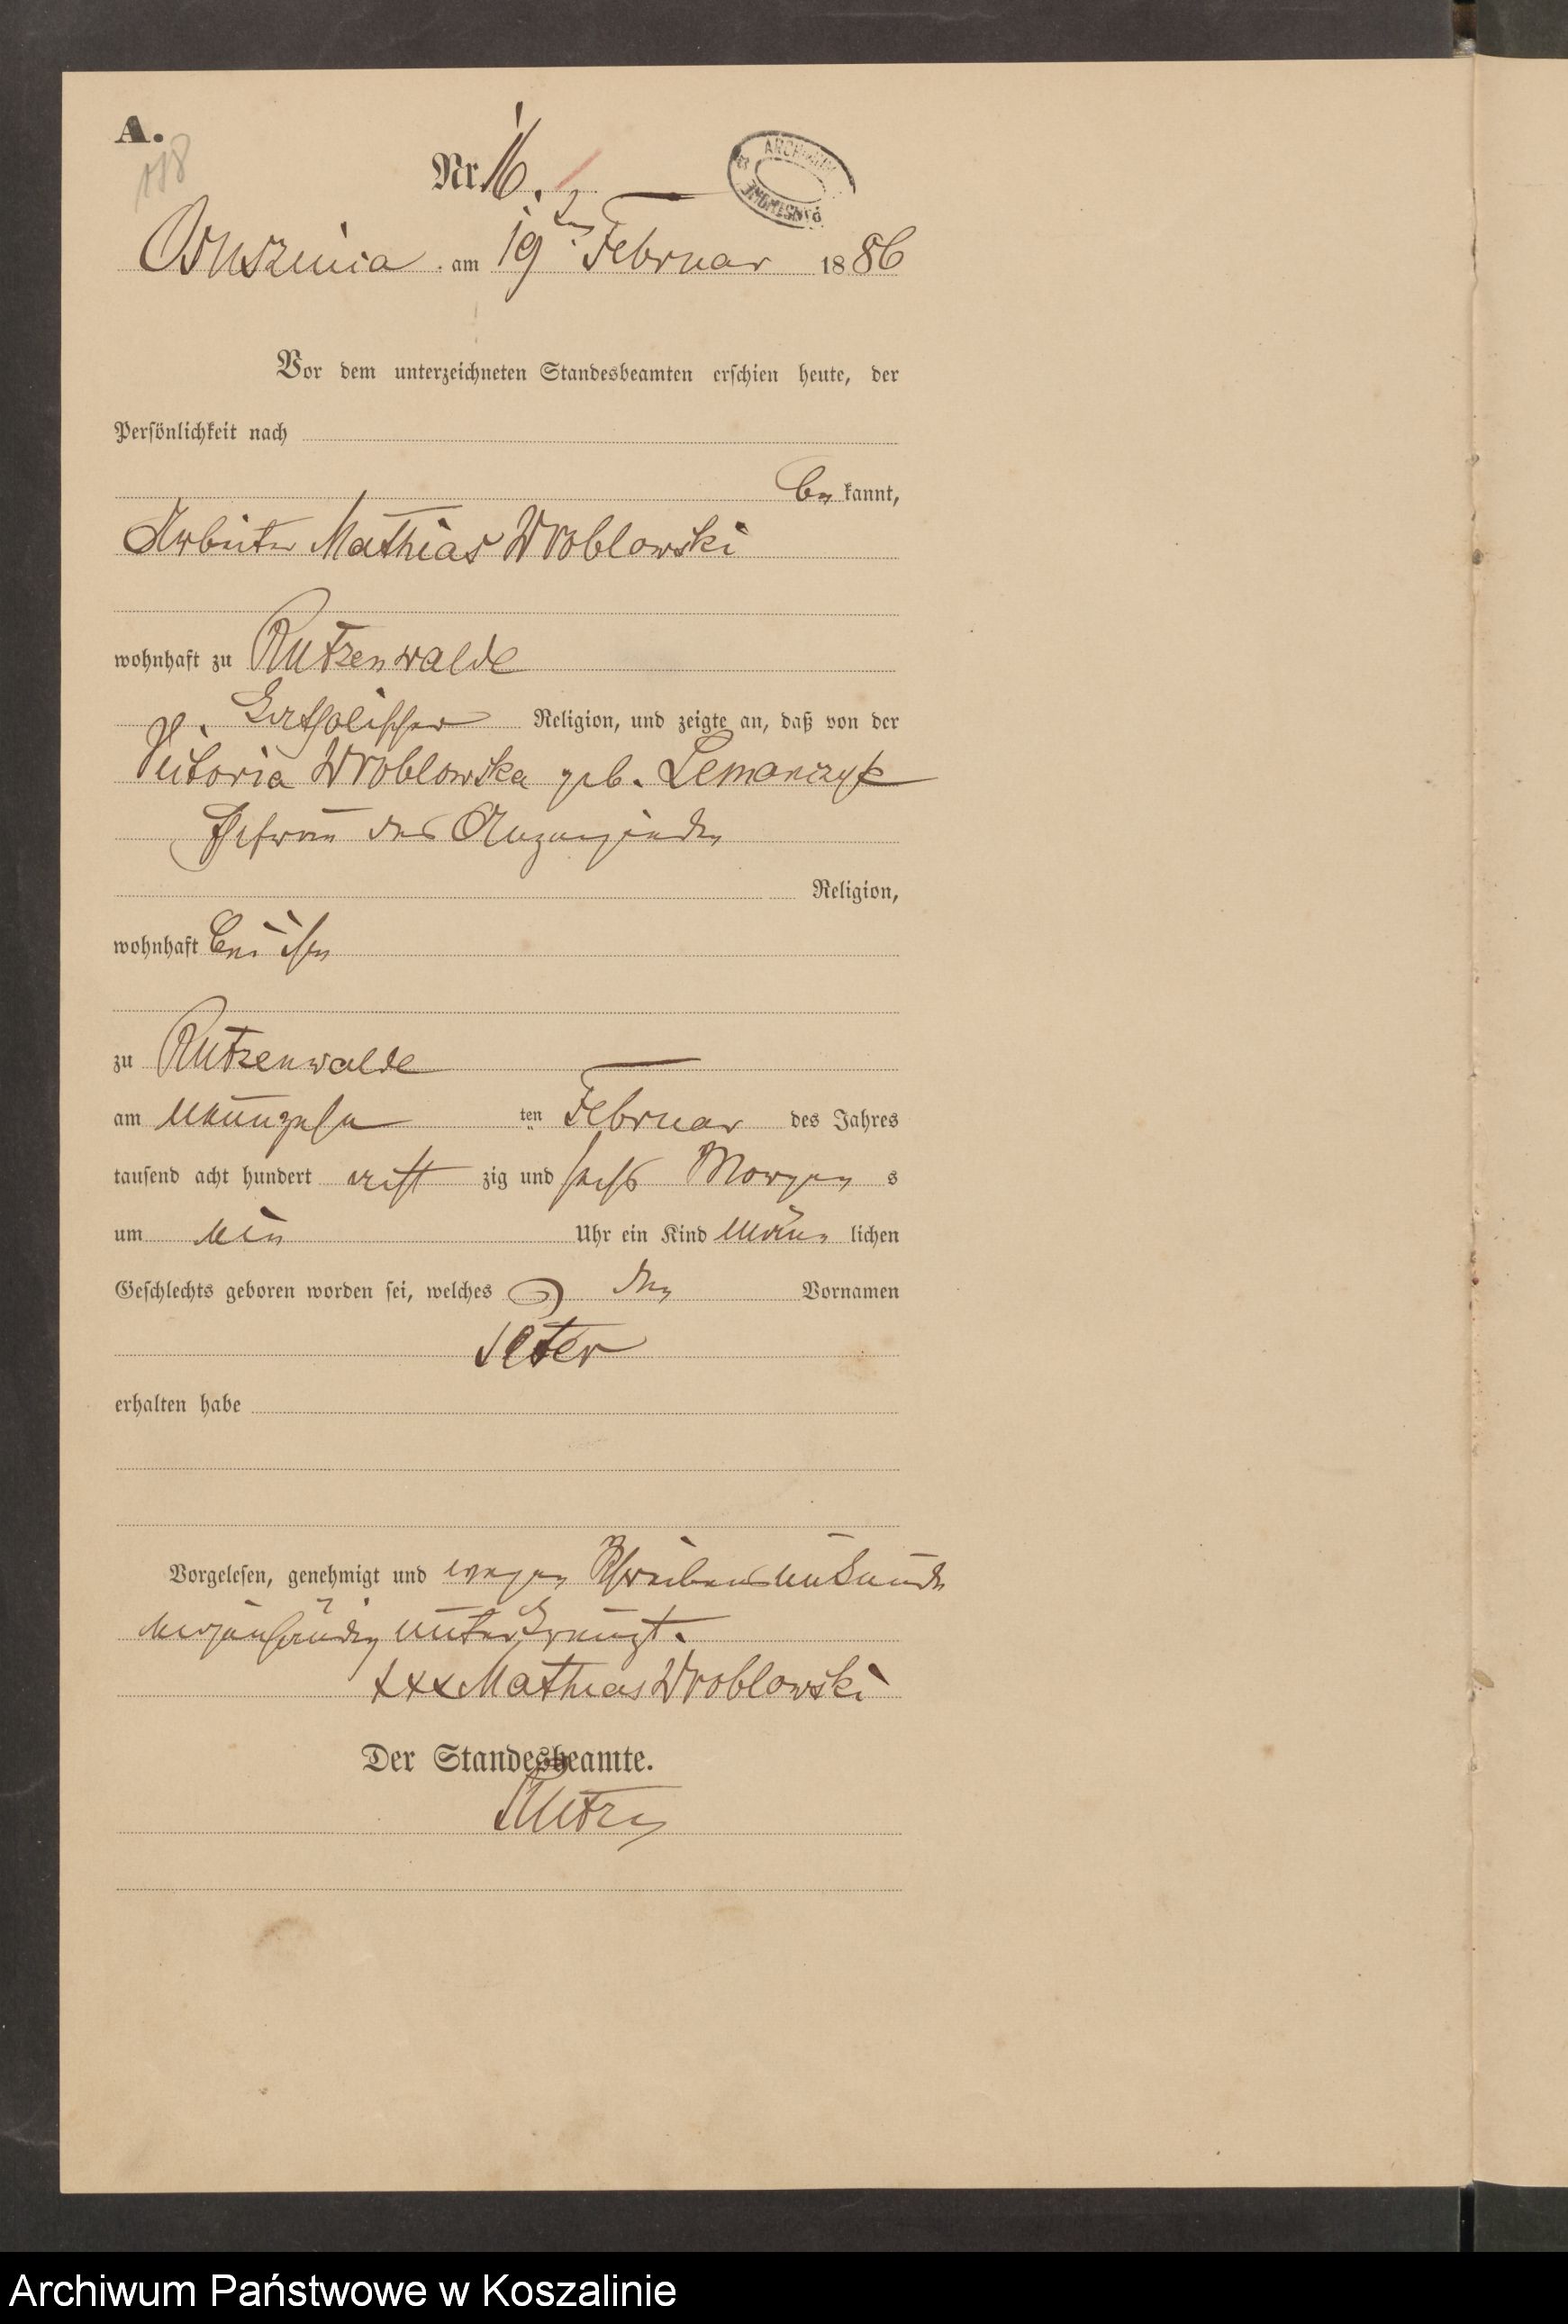 A.
118
Nr. 16.
ARCHIWUM PAŃSTWOWE
Osusznica am 19ten Februar 1886
Vor dem unterzeichneten Standesbeamten erschien heute, der
Persönlichkeit nach
be kannt,
Arbeiter Mathias Wroblowski
wohnhaft zu Rutzenwalde
katholischer Religion, und zeigte an, daß von der
Victoria Wroblowska geb. Lemanczyk
Ehefrau des Anzeigenden
Religion,
wohnhaft bei ihm
zu Rutzenwalde
am neunzehn ten Februar des Jahres
tausend acht hundert acht zig und sechs Morgen s
um ein Uhr ein Kind männ lichen
Geschlechts geboren worden sei, welches den Vornamen
Peter
erhalten habe
Vorgelesen, genehmigt und wegen Schreibensunkunde
unterkreuzt.
xxx Mathias Wroblowski
Der Standesbeamte.
Archiwum Państwowe w Koszalinie